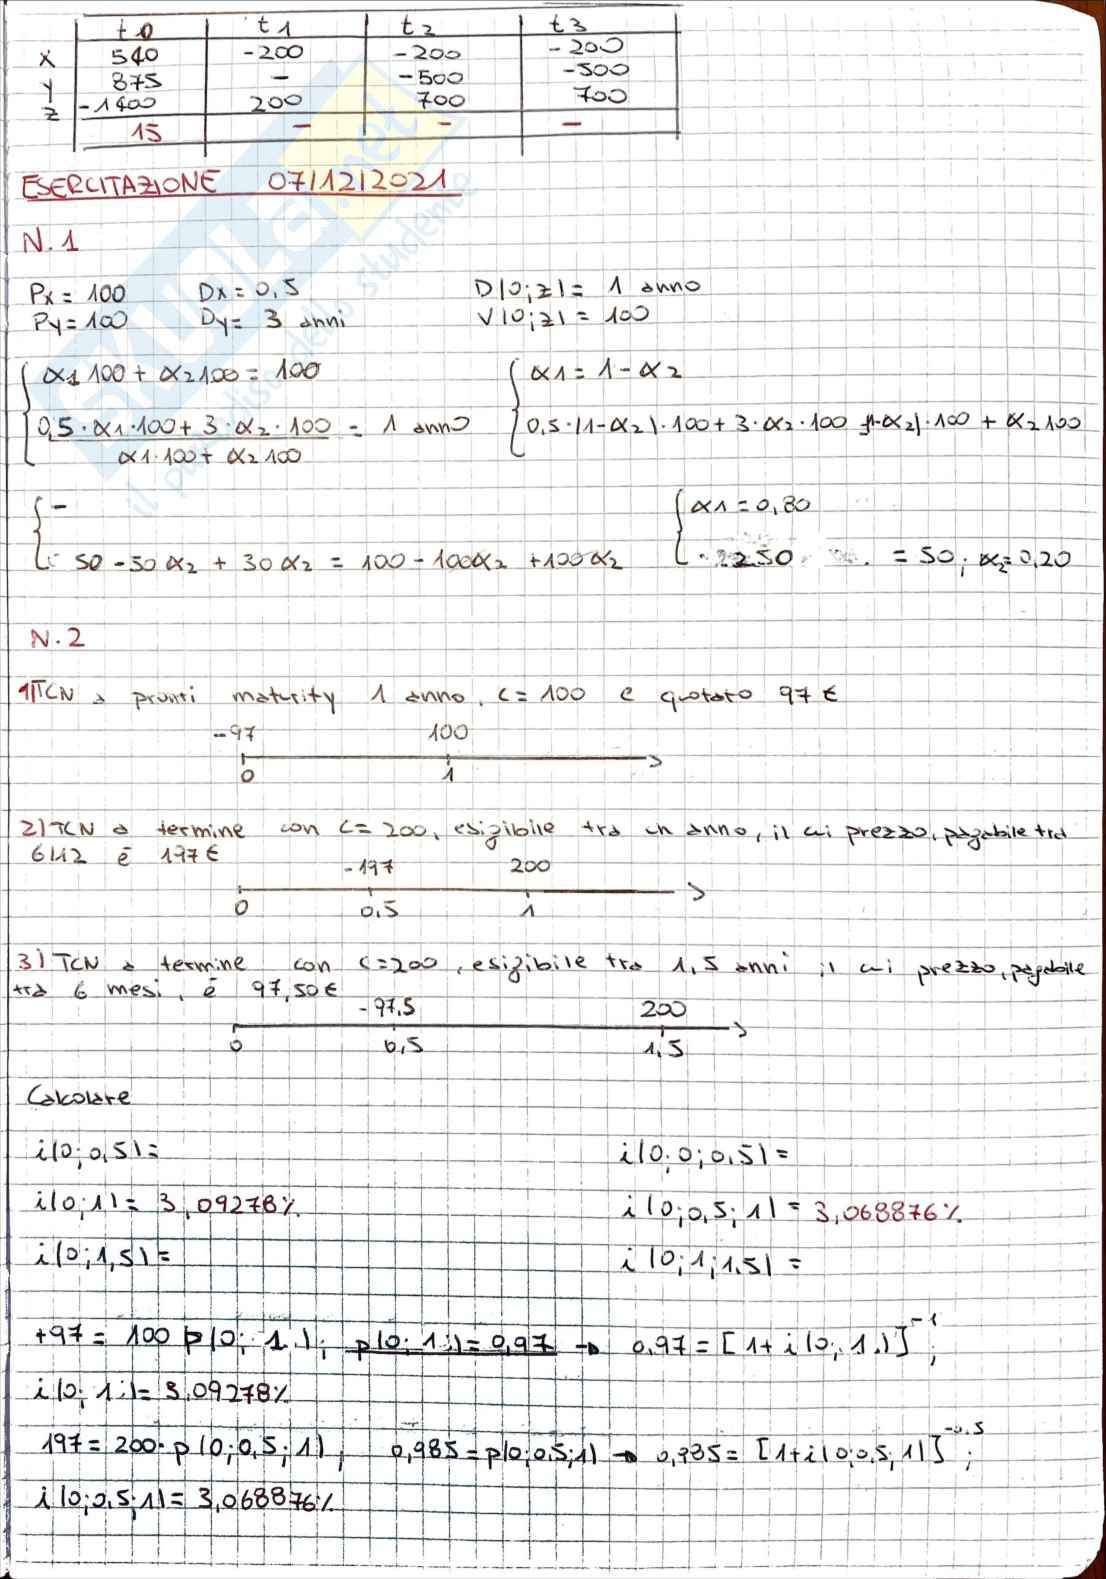 t0 t1 t2 t3
X 540 -200 -200 -200
Y 875 - -500 -500
Z -1400 200 700 700
15 - - -
ESERCITAZIONE 07/12/2021
N.1
Px = 100 Dx = 0,5 D(0;z) = 1 anno
Py = 100 Dy = 3 anni V(0;z) = 100
α1 100 + α2 100 = 100 α1 = 1 - α2
0,5·α1·100 + 3·α2·100 = 1 anno 0,5·(1-α2)·100 + 3·α2·100 (1-α2)·100 + α2 100
α1·100 + α2 100
- α1 = 0,80
50 - 50α2 + 30α2 = 100 - 100α2 + 100α2 250 = 50; α2 = 0,20
N.2
1) TCN a pronti maturity 1 anno, C = 100 e quotato 97 €
-97 100
0 1
2) TCN a termine con C = 200, esigibile tra un anno, il cui prezzo, pagabile tra
6M2 è 197 €
-197 200
0 0,5 1
3) TCN a termine con C=200, esigibile tra 1,5 anni il cui prezzo, pagabile
tra 6 mesi, è 97,50€
-97,5 200
0 0,5 1,5
Calcolare
i(0;0,5) = i(0;0;0,5) =
i(0;1) = 3,09278% i(0;0,5;1) = 3,068876%
i(0;1,5) = i(0;1;1,5) =
+97 = 100 p(0;1); p(0;1) = 0,97 → 0,97 = [1+i(0;1)]⁻¹;
i(0;1) = 3,09278%
197 = 200·p(0;0,5;1); 0,985 = p(0;0,5;1) → 0,985 = [1+i(0;0,5;1)]⁻⁰·⁵;
i(0;0,5;1) = 3,068876%
SKUOLA.net
il paradiso dello studente